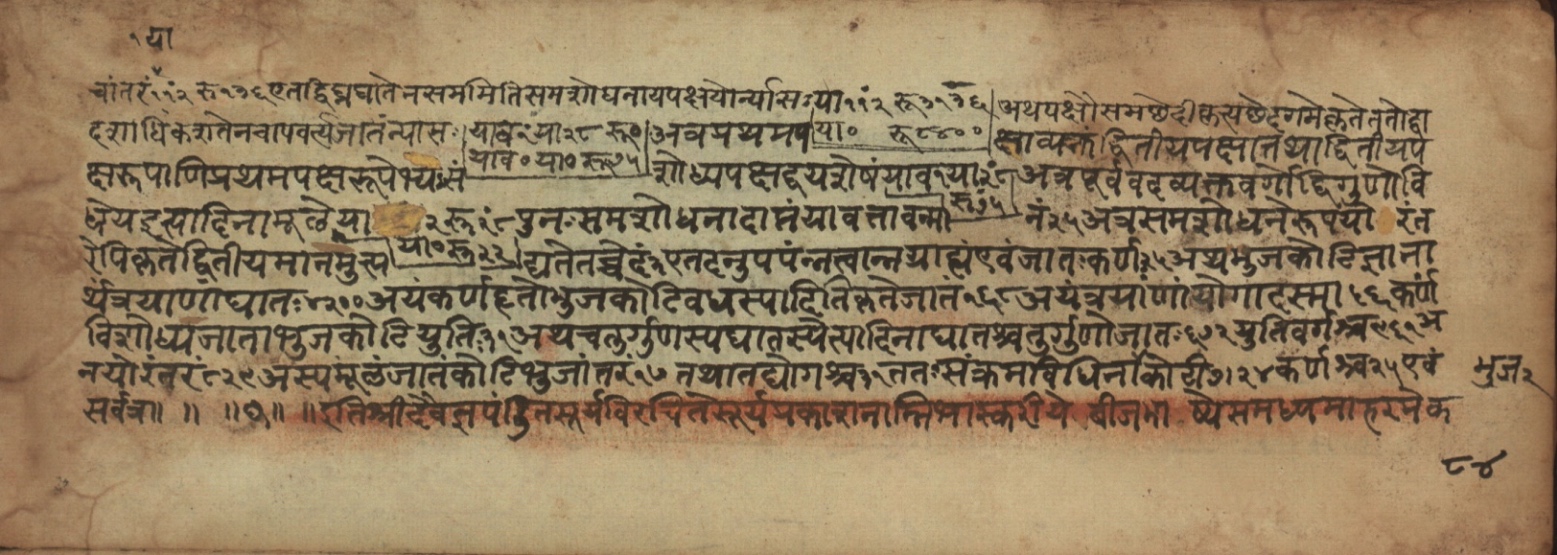 १ या
चांतरं ११ं२ रू ३१३६ एतद्द्विघ्नघातेन सममिति समशोधनाय पक्षयोर्न्यासः या ११ं२ रू ३१३६ अथ पक्षौ समछेदीकृत्य छेदगमे कृते ततो द्वा
दशाधिकशतेन चापवर्त्य जातं न्यासः याव २ं या २८ रू० अत्र प्रथमप या० रू ८४०० क्षाव्यक्तं द्वितीयपक्षात्तथा द्वितीयप
क्षरूपाणि प्रथमपक्षरूपेभ्यः सं याव० या० रू ७५ शोध्य पक्षद्वयशेषं याव १ या २ं८ अत्र पूर्ववदव्यक्तवर्गादि गुणो वि
धेय इत्यादिना मूले या २ रू १ं८ पुनः समशोधनादाप्तं यावत्तावन्मा रू ७५ नं २५ अत्र समशोधने रूपयो रंत
रेपि कृते द्वितीयमानमुत्प या० रू २२ द्यते तच्चेदं ३ एतदनुपपंन्नत्वान्न ग्राह्यं एवं जातः कर्णः २५ अथ भुजकोटिज्ञाना
र्थं त्रयाणां घातः ४२०० अयं कर्णहृतो भुजकोटिवधस्यादिति कृते जातं १६८ अयं त्रयाणां योगादस्मा ५६ कर्णं
विशोध्य जाता भुजकोटियुतिः ३१ अथ चतुर्गुणस्य घातस्येत्यादिना घातश्चतुर्गुणो जातः ६७२ युतिवर्गश्च ९६१ अ
नयोरंतरं २८९ अस्य मूलं जातं कोटिभुजांतरं १७ तथा तद्योगश्च ३१ ततः संक्रमविधिना कोटी ७।२४ कर्णश्च २५ एवं
भुज २
सर्वत्र॥ ॥ ॥९॥ ॥इति श्रीदैवज्ञपंडितसूर्यविरचिते सूर्यप्रकाशनाम्नि भास्करीये बीजभाष्ये समध्यमाहरणैक
८४